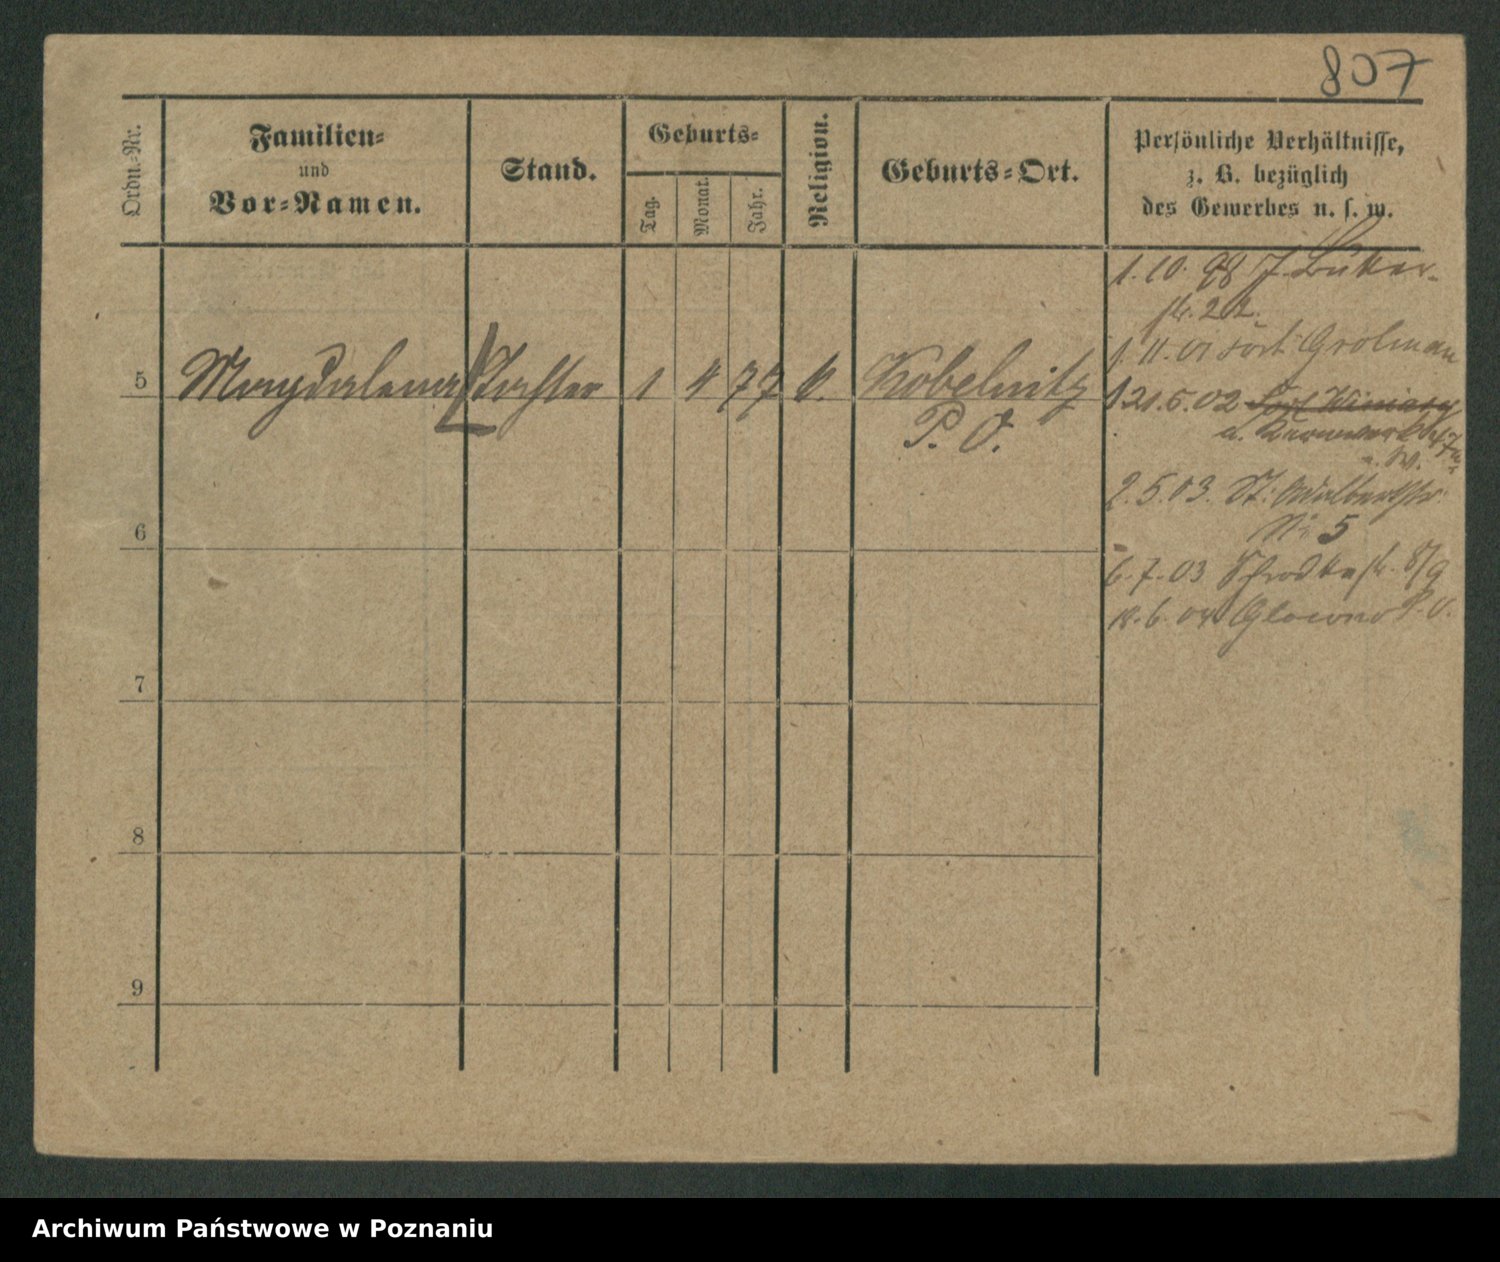 807
Ordn.-Nr.
Familien-
und
Vor-Namen.
Stand.
Geburts-
Tag.
Monat.
Jahr.
Religion.
Geburts-Ort.
Persönliche Verhältnisse,
z. B. bezüglich
des Gewerbes u. s. w.
1. 10. 98
str. 22.
1. 11. 01 Fort Grolman
5 Magdalena Tochter 1 4 77 k. Kobelnitz
P. O.
21. 5. 02 Fort Winiary
a.
2. 5. 03. St. Adalbertstr.
No 5
6
6. 7. 03 Schrodkastr. 8/9
18. 6. 04 Glowno P. O.
7
8
9
Archiwum Państwowe w Poznaniu